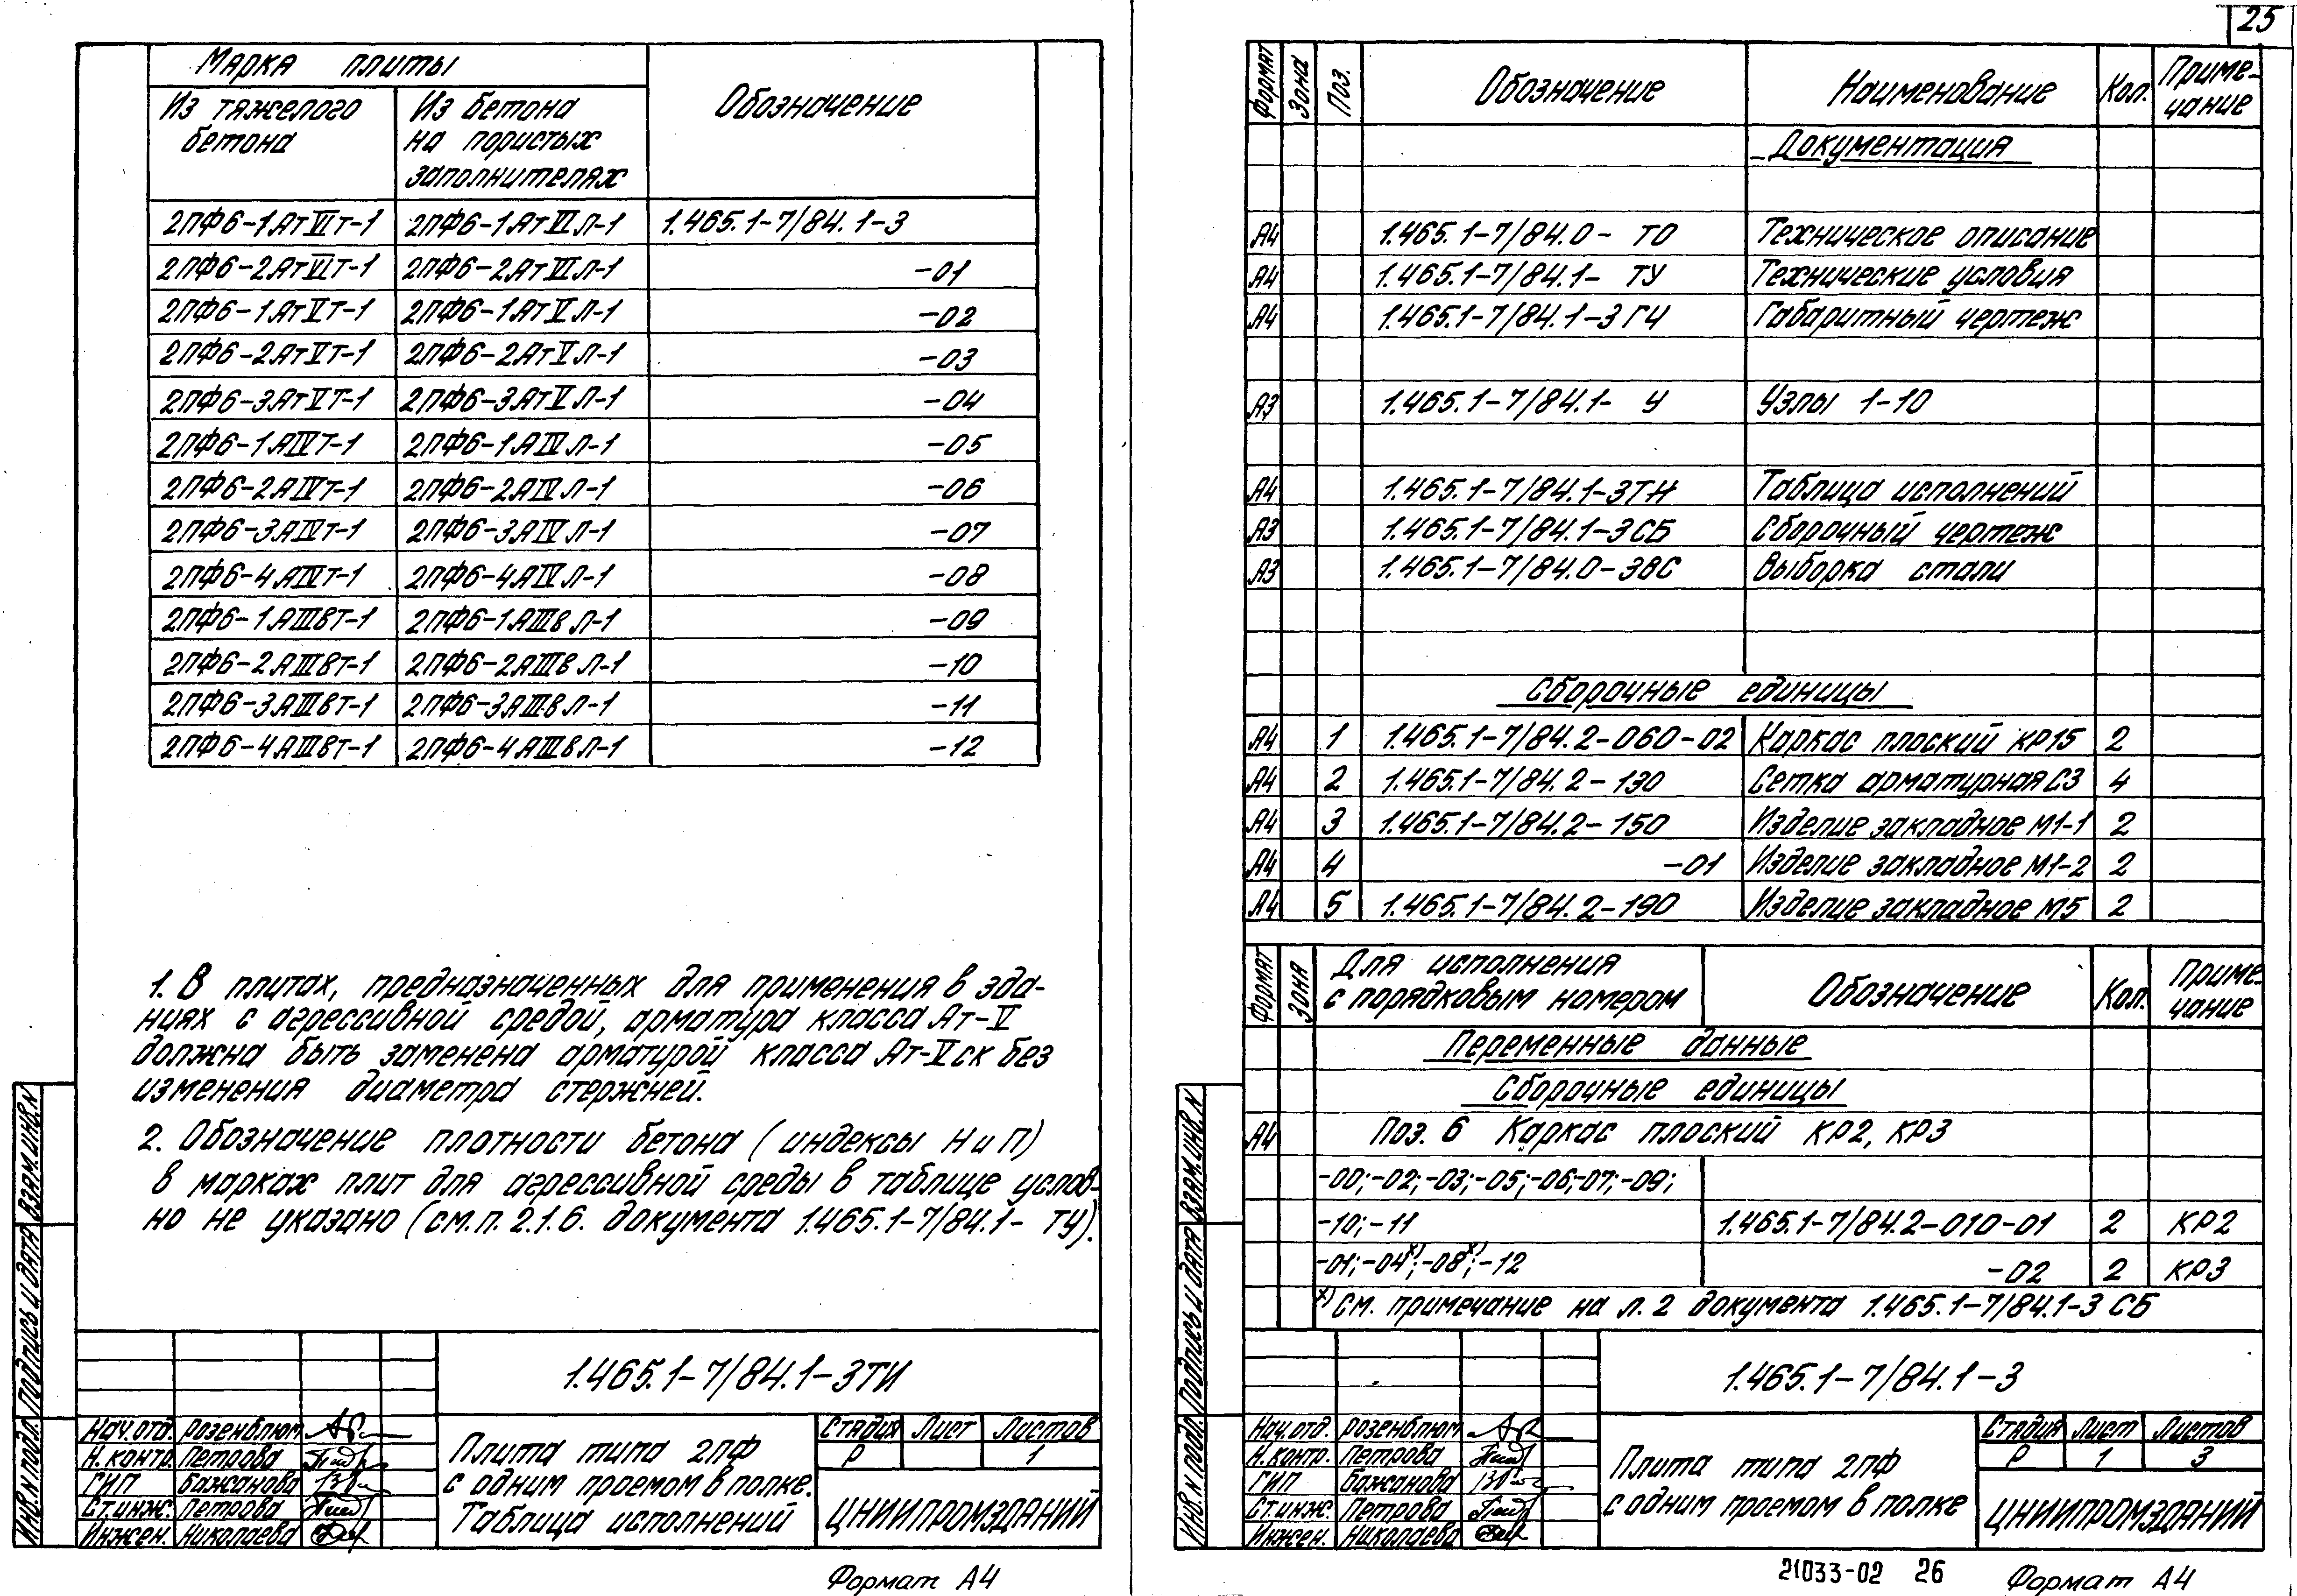 Марка плиты
Из тяжелого бетона | Из бетона на пористых заполнителях | Обозначение
2ПФ6-1АтVIт-1 | 2ПФ6-1АтVIл-1 | 1.465.1-7/84.1-3
2ПФ6-2АтVIт-1 | 2ПФ6-2АтVIл-1 | -01
2ПФ6-1АтVт-1 | 2ПФ6-1АтVл-1 | -02
2ПФ6-2АтVт-1 | 2ПФ6-2АтVл-1 | -03
2ПФ6-3АтVт-1 | 2ПФ6-3АтVл-1 | -04
2ПФ6-1АIVт-1 | 2ПФ6-1АIVл-1 | -05
2ПФ6-2АIVт-1 | 2ПФ6-2АIVл-1 | -06
2ПФ6-3АIVт-1 | 2ПФ6-3АIVл-1 | -07
2ПФ6-4АIVт-1 | 2ПФ6-4АIVл-1 | -08
2ПФ6-1АIIIвт-1 | 2ПФ6-1АIIIвл-1 | -09
2ПФ6-2АIIIвт-1 | 2ПФ6-2АIIIвл-1 | -10
2ПФ6-3АIIIвт-1 | 2ПФ6-3АIIIвл-1 | -11
2ПФ6-4АIIIвт-1 | 2ПФ6-4АIIIвл-1 | -12
1. В плитах, предназначенных для применения в зда-
ниях с агрессивной средой, арматура класса Ат-V
должна быть заменена арматурой класса Ат-Vск без
изменения диаметра стержней.
2. Обозначение плотности бетона (индексы Н и П)
в марках плит для агрессивной среды в таблице услов-
но не указано (см.п. 2.1.6. документа 1.465.1-7/84.1- ТУ).
Инв.N подл. Подпись и дата Взам.инв.N
1.465.1-7/84.1-3ТИ
Нач.отд. Розенблюм
Н.контр. Петрова
ГИП Бажанова
Ст.инж. Петрова
Инжен. Николаева
Плита типа 2ПФ
с одним проемом в полке.
Таблица исполнений
Стадия Лист Листов
Р 1
ЦНИИПРОМЗДАНИЙ
Формат А4
25
Формат | Зона | Поз. | Обозначение | Наименование | Кол. | Приме-чание
Документация
А4 1.465.1-7/84.0- ТО Техническое описание
А4 1.465.1-7/84.1- ТУ Технические условия
А4 1.465.1-7/84.1-3ГЧ Габаритный чертеж
А3 1.465.1-7/84.1- У Узлы 1-10
А4 1.465.1-7/84.1-3ТН Таблица исполнений
А3 1.465.1-7/84.1-3СБ Сборочный чертеж
А3 1.465.1-7/84.0-3ВС Выборка стали
Сборочные единицы
А4 1 1.465.1-7/84.2-060-02 Каркас плоский КР15 2
А4 2 1.465.1-7/84.2-130 Сетка арматурная С3 4
А4 3 1.465.1-7/84.2-150 Изделие закладное М1-1 2
А4 4 -01 Изделие закладное М1-2 2
А4 5 1.465.1-7/84.2-190 Изделие закладное М5 2
Формат | Зона | Для исполнения с порядковым номером | Обозначение | Кол. | Приме-чание
Переменные данные
Сборочные единицы
А4 Поз. 6 Каркас плоский КР2, КР3
-00;-02;-03;-05;-06;-07;-09;
-10;-11 1.465.1-7/84.2-010-01 2 КР2
-01;-04х);-08х);-12 -02 2 КР3
х) См. примечание на л. 2 документа 1.465.1-7/84.1-3 СБ
Инв.N подл. Подпись и дата Взам.инв.N
1.465.1-7/84.1-3
Нач.отд. Розенблюм
Н.контр. Петрова
ГИП Бажанова
Ст.инж. Петрова
Инжен. Николаева
Плита типа 2ПФ
с одним проемом в полке
Стадия Лист Листов
Р 1 3
ЦНИИПРОМЗДАНИЙ
21033-02 26
Формат А4